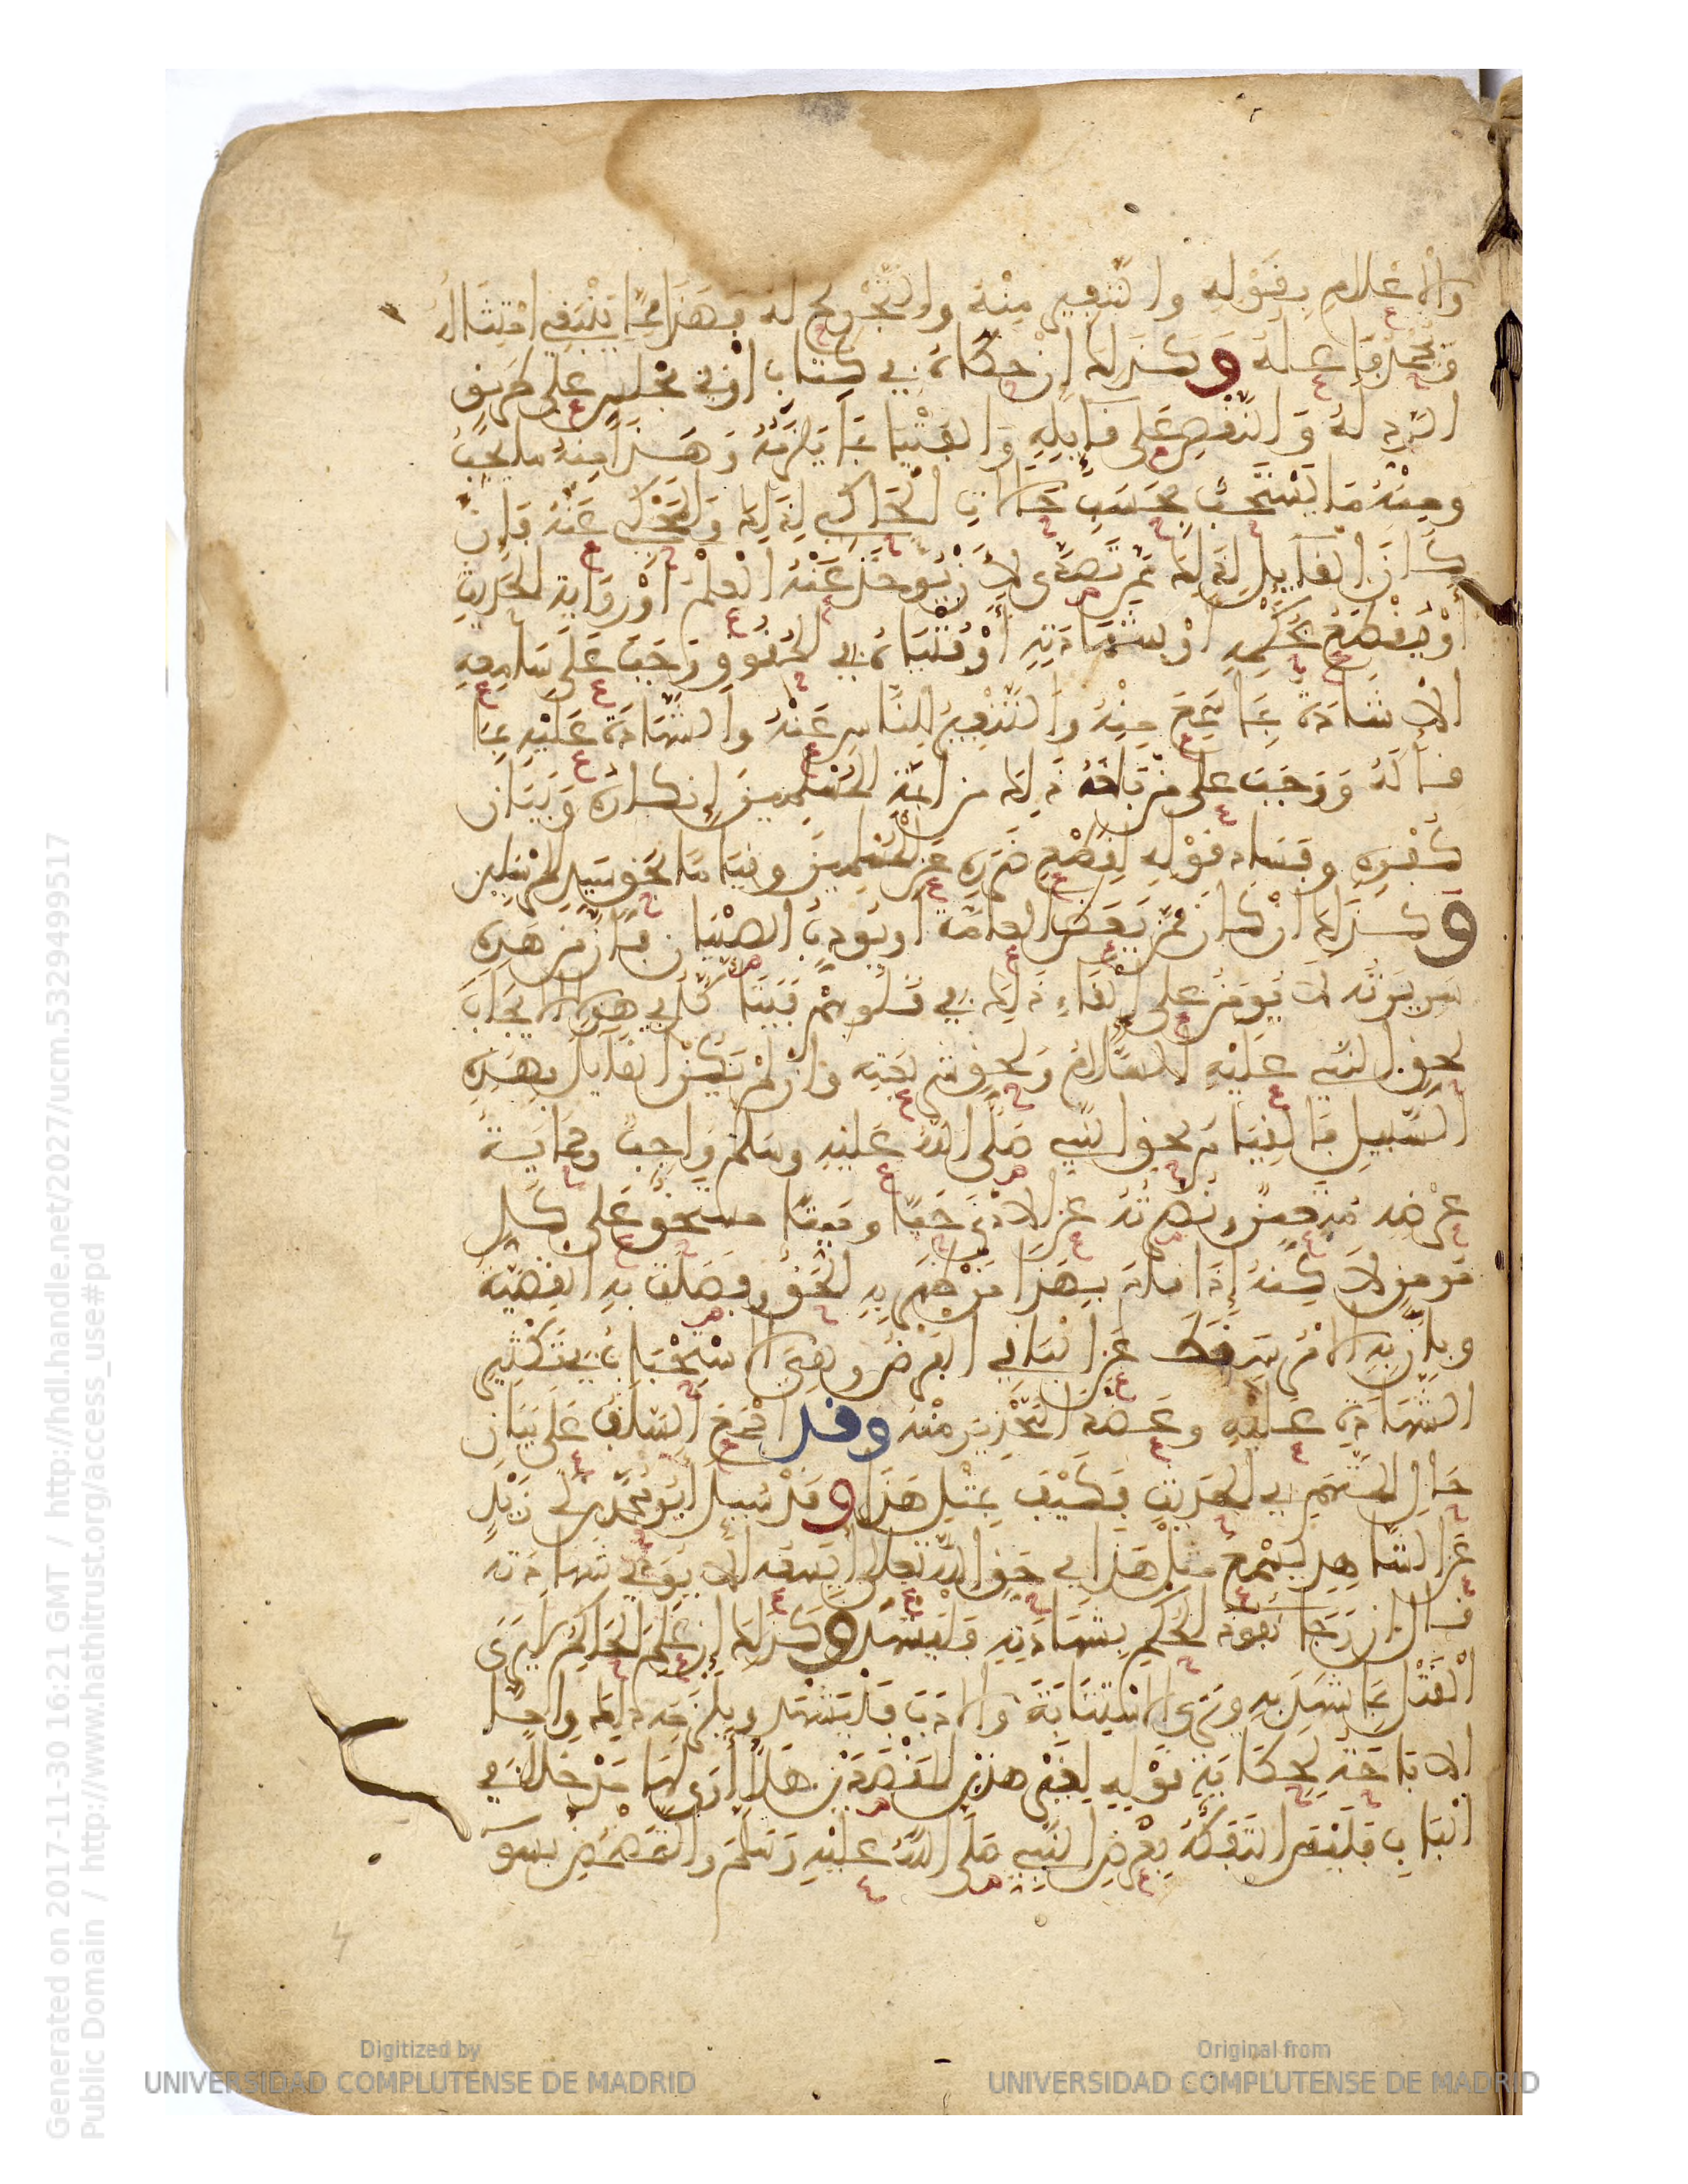 وَالْإِعْلَامِ بِقَوْلِهِ وَالتَّنْفِيرِ مِنْهُ وَالتَّجْرِيحِ لَهُ فَهَذَا مِمَّا يَنْبَغِي امْتِثَالُهُ
وَيُحْمَدُ فَاعِلُهُ وَكَذَلِكَ إِنْ حَكَاهُ فِي كِتَابٍ أَوْ فِي مَجْلِسٍ عَلَى طَرِيقِ
الرَّدِّ لَهُ وَالنَّقْضِ عَلَى قَائِلِهِ وَالْفُتْيَا بِمَا يَلْزَمُهُ وَهَذَا مِنْهُ مَا يَجِبُ
وَمِنْهُ مَا يُسْتَحَبُّ بِحَسَبِ حَالَاتِ الْحَاكِي لِذَلِكَ وَالْمَحْكِيِّ عَنْهُ فَإِنْ
كَانَ الْقَائِلُ لِذَلِكَ مِمَّنْ تَصَدَّى لِأَنْ يُؤْخَذَ عَنْهُ الْعِلْمُ أَوْ رِوَايَةُ الْحَدِيثِ
أَوْ يُقْطَعَ بِحُكْمِهِ أَوْ بِشَهَادَتِهِ أَوْ فُتْيَاهُ فِي الْحُقُوقِ وَجَبَ عَلَى سَامِعِهِ
الْإِشَادَةُ بِمَا سَمِعَ مِنْهُ وَالتَّنْفِيرُ لِلنَّاسِ عَنْهُ وَالشَّهَادَةُ عَلَيْهِ بِمَا
قَالَهُ وَوَجَبَ عَلَى مَنْ بَلَغَهُ ذَلِكَ مِنْ أَئِمَّةِ الْمُسْلِمِينَ إِنْكَارُهُ وَبَيَانُ
كُفْرِهِ وَفَسَادِ قَوْلِهِ لِقَطْعِ ضَرَرِهِ عَنِ الْمُسْلِمِينَ وَقِيَامًا بِحَقِّ سَيِّدِ الْمُرْسَلِينَ
وَكَذَلِكَ إِنْ كَانَ مِمَّنْ يَعِظُ الْعَامَّةَ أَوْ يُؤَدِّبُ الصِّبْيَانَ فَإِنَّ مَنْ هَذِهِ
سَرِيرَتُهُ لَا يُؤْمَنُ عَلَى إِلْقَاءِ ذَلِكَ فِي قُلُوبِهِمْ فَيَتَأَكَّدُ فِي هَؤُلَاءِ الْإِيجَابُ
لِحَقِّ النَّبِيِّ عَلَيْهِ السَّلَامُ وَلِحَقِّ شَرِيعَتِهِ وَإِنْ لَمْ يَكُنِ الْقَائِلُ بِهَذِهِ
السَّبِيلِ فَالْقِيَامُ بِحَقِّ النَّبِيِّ صَلَّى اللَّهُ عَلَيْهِ وَسَلَّمَ وَاجِبٌ وَحِمَايَةُ
عِرْضِهِ مُتَعَيِّنٌ وَنُصْرَتُهُ عَنِ الْأَذَى حَيًّا وَمَيِّتًا مُسْتَحَقٌّ عَلَى كُلِّ
مُؤْمِنٍ لَاكِنَّهُ إِذَا قَامَ بِهَذَا مَنْ ظَهَرَ بِهِ الْحَقُّ وَفُصِلَتْ بِهِ الْقَضِيَّةُ
وَبَانَ بِهِ الْأَمْرُ سَقَطَ عَنِ الْبَاقِي الْفَرْضُ وَبَقِيَ الِاسْتِحْبَابُ فِي تَكْثِيرِ
الشَّهَادَةِ عَلَيْهِ وَعَضْدِ التَّحْذِيرِ مِنْهُ وَقَدْ أَجْمَعَ السَّلَفُ عَلَى بَيَانِ
حَالِ الْمُتَّهَمِ فِي الْحَدِيثِ فَكَيْفَ بِمِثْلِ هَذَا وَقَدْ سُئِلَ أَبُو مُحَمَّدِ بْنُ أَبِي زَيْدٍ
عَنِ الشَّاهِدِ يَسْمَعُ مِثْلَ هَذَا فِي حَقِّ اللَّهِ تَعَالَى أَيَسَعُهُ أَلَّا يُؤَدِّيَ شَهَادَتَهُ
قَالَ إِنْ رَجَا نُفُوذَ الْحُكْمِ بِشَهَادَتِهِ فَلْيَشْهَدْ وَكَذَلِكَ إِنْ عَلِمَ الْحَاكِمَ لَا يَرَى
الْقَتْلَ بِمَا شَهِدَ بِهِ وَيَرَى الِاسْتِتَابَةَ وَالْأَدَبَ فَلْيَشْهَدْ وَيَلْزَمُهُ ذَلِكَ وَأَمَّا
الْإِبَاحَةُ لِحِكَايَةِ قَوْلِهِ لِغَيْرِ هَذَيْنِ الْمَقْصِدَيْنِ فَلَا أَرَى لَهَا مَدْخَلًا فِي
الْبَابِ فَلَيْسَ التَّفَكُّهُ بِعِرْضِ النَّبِيِّ صَلَّى اللَّهُ عَلَيْهِ وَسَلَّمَ وَالتَّمَضْمُضُ بِسُوءِ
Generated on 2017-11-30 16:21 GMT / http://hdl.handle.net/2027/ucm.5329499517
Public Domain / http://www.hathitrust.org/access_use#pd
Digitized by
UNIVERSIDAD COMPLUTENSE DE MADRID
Original from
UNIVERSIDAD COMPLUTENSE DE MADRID